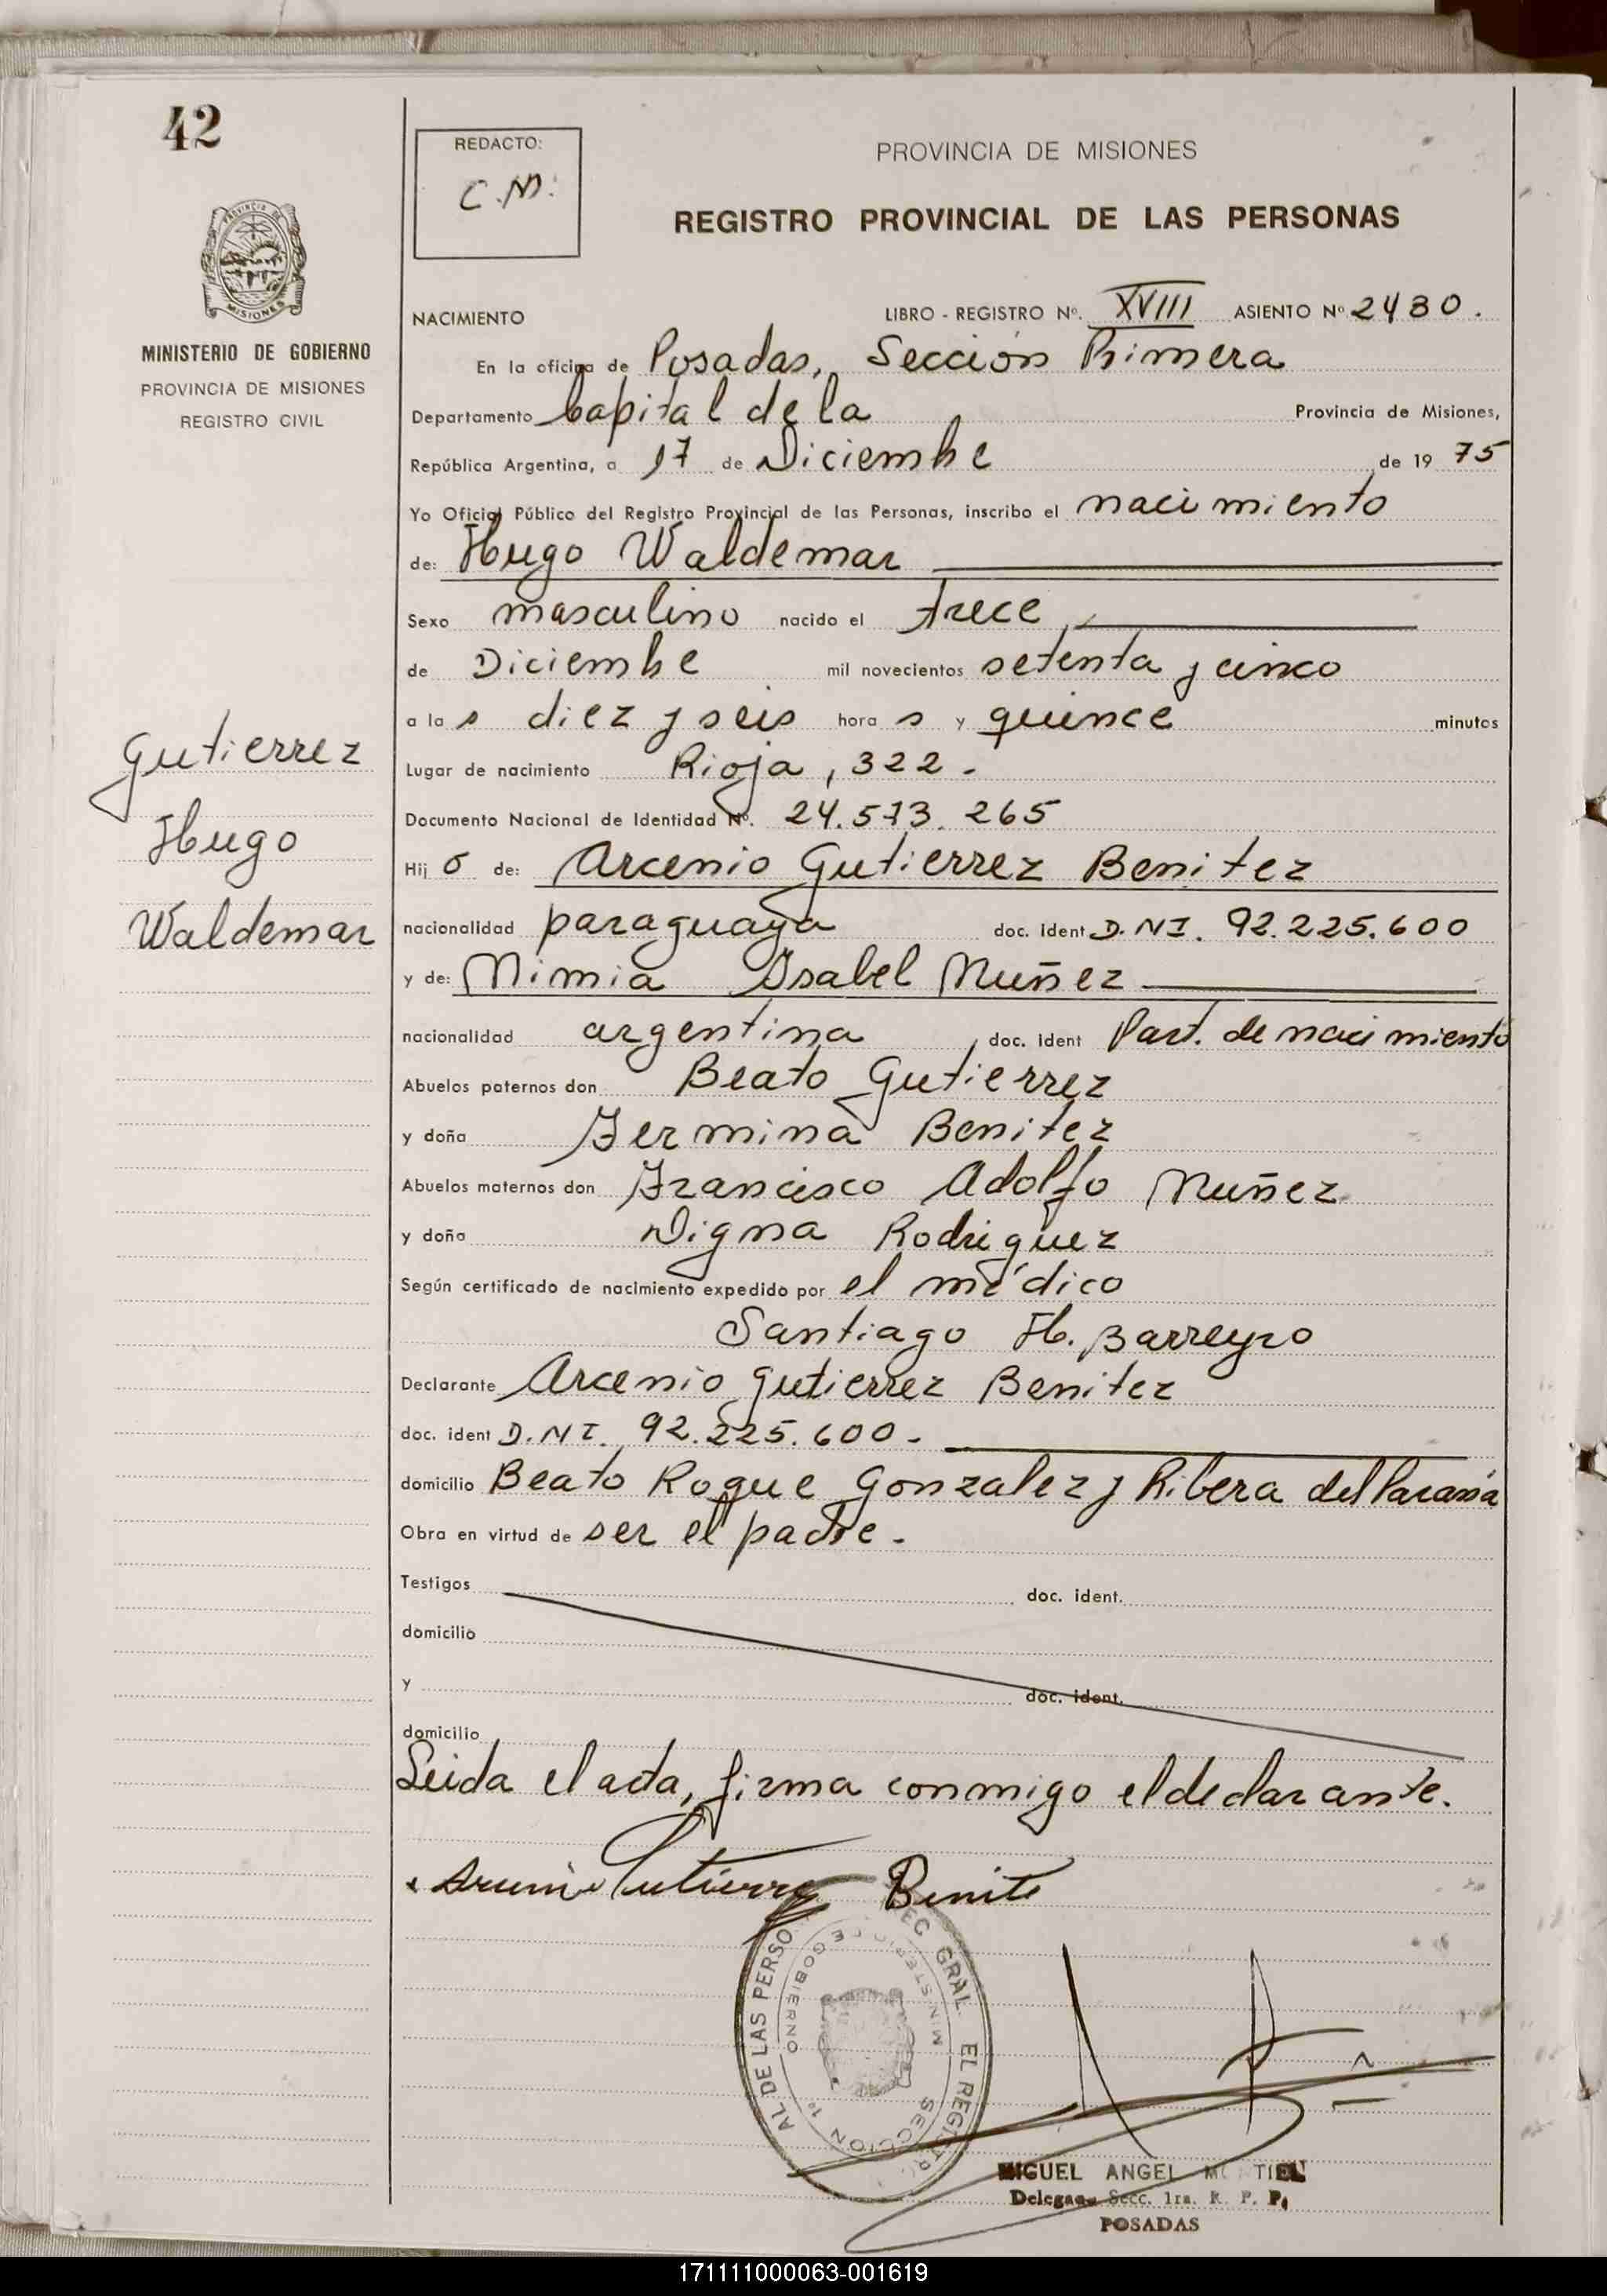 42
REDACTO:
C.M.
PROVINCIA DE MISIONES
REGISTRO PROVINCIAL DE LAS PERSONAS
MISIONES
MINISTERIO DE GOBIERNO
PROVINCIA DE MISIONES
REGISTRO CIVIL
NACIMIENTO LIBRO - REGISTRO Nº. XVIII ASIENTO Nº 2430.
En la oficina de Posadas, Sección Primera
Departamento Capital de la Provincia de Misiones,
República Argentina, a 17 de Diciembre de 1975
Yo Oficial Público del Registro Provincial de las Personas, inscribo el nacimiento
de: Hugo Waldemar
Sexo masculino nacido el trece
de Diciembre mil novecientos setenta y cinco
a las diez y seis horas y quince minutos
Lugar de nacimiento Rioja, 322.-
Documento Nacional de Identidad Nº. 24.573.265
Hijo de: Arcenio Gutierrez Benitez
nacionalidad paraguaya doc. ident D.N.I. 92.225.600
y de: Mimia Isabel Nuñez
nacionalidad argentina doc. ident Part. de nacimiento
Abuelos paternos don Beato Gutierrez
y doña Fermina Benitez
Abuelos maternos don Francisco Adolfo Nuñez
y doña Digna Rodriguez
Según certificado de nacimiento expedido por el médico
Santiago H. Barreyro
Declarante Arcenio Gutierrez Benitez
doc. ident D.N.I. 92.225.600.-
domicilio Beato Roque Gonzalez y Ribera del Paraná
Obra en virtud de ser el padre.-
Testigos doc. ident.
domicilio
y doc. ident.
domicilio
Leida el acta, firma conmigo el declarante.
Gutierrez
Hugo
Waldemar
Gutierrez Benite
AL DE LAS PERSO EC GRAL EL REGISTRO
MINISTERIO DE GOBIERNO SECCION 1º
MIGUEL ANGEL MONTIEL
Delegado Secc. 1ra. R. P. P.
POSADAS
171111000063-001619